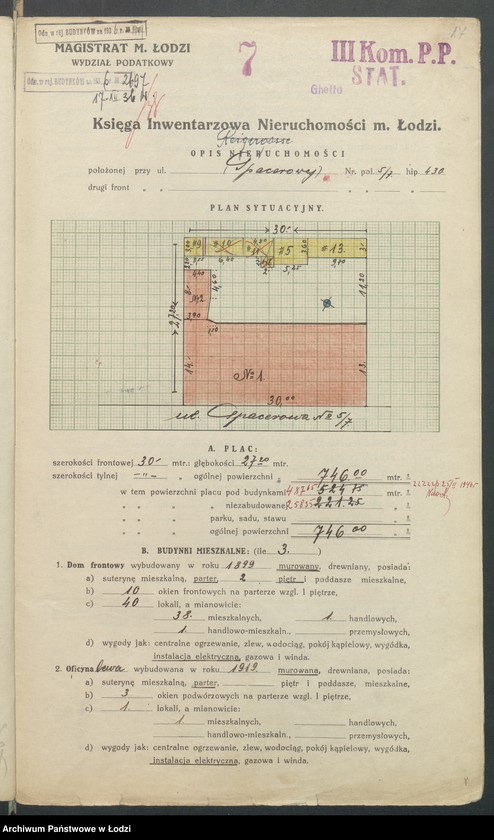 MAGISTRAT M. ŁODZI
WYDZIAŁ PODATKOWY
7
III Kom. P.P.
STAT.
Ghetto
Księga Inwentarzowa Nieruchomości m. Łodzi.
OPIS NIERUCHOMOŚCI
położonej przy ul. (Spacerowy) Nr. pol. 5/7 hip. 430.
drugi front „ „ „ „
PLAN SYTUACYJNY.
30.-
№ 5
№ 13.
5,25
9,70
11,20
4,60
№ 2
27,20
14.-
№ 1
13.
30,00
ul. Spacerowa № 5/7
A. PLAC:
szerokości frontowej 30.- mtr.: głębokości 27 20 mtr.
szerokości tylnej „ ogólnej powierzchni „ 746 00 mtr. ²
w tem powierzchni placu pod budynkami 524 75 mtr. ²
„ „ „ niezabudowanej 221.25 „ ²
„ „ „ parku, sadu, stawu „ ²
„ „ „ ogólnej powierzchni 746 00 „ ²
B. BUDYNKI MIESZKALNE: (ile 3. )
1. Dom frontowy wybudowany w roku 1899 murowany, drewniany, posiada:
a) suterynę mieszkalną, parter, 2 piętr i poddasze mieszkalne,
b) 10 okien frontowych na parterze wzgl. I piętrze,
c) 40 lokali, a mianowicie:
38. mieszkalnych, 1. handlowych,
1. handlowo-mieszkaln., przemysłowych,
d) wygody jak: centralne ogrzewanie, zlew, wodociąg, pokój kąpielowy, wygódka,
instalacja elektryczna, gazowa i winda.
2. Oficyna lewa wybudowana w roku 1919. murowana, drewniana, posiada:
a) suterynę mieszkalną, parter, piętr i poddasze, mieszkalne,
b) 3 okien podwórzowych na parterze wzgl. I piętrze,
c) 1. lokali, a mianowicie:
1 mieszkalnych, handlowych,
handlowo-mieszkaln., przemysłowych,
d) wygody jak: centralne ogrzewanie, zlew, wodociąg, pokój kąpielowy, wygódka,
instalacja elektryczna, gazowa i winda.
Archiwum Państwowe w Łodzi